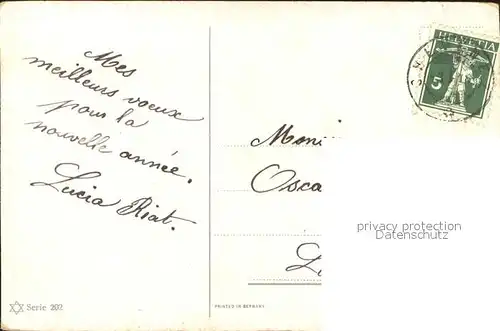 Mes
meilleurs voeux
pour la
nouvelle année.
Lucia Riat.
HELVETIA
5
privacy protection
Datenschutz
Serie 202
PRINTED IN GERMANY